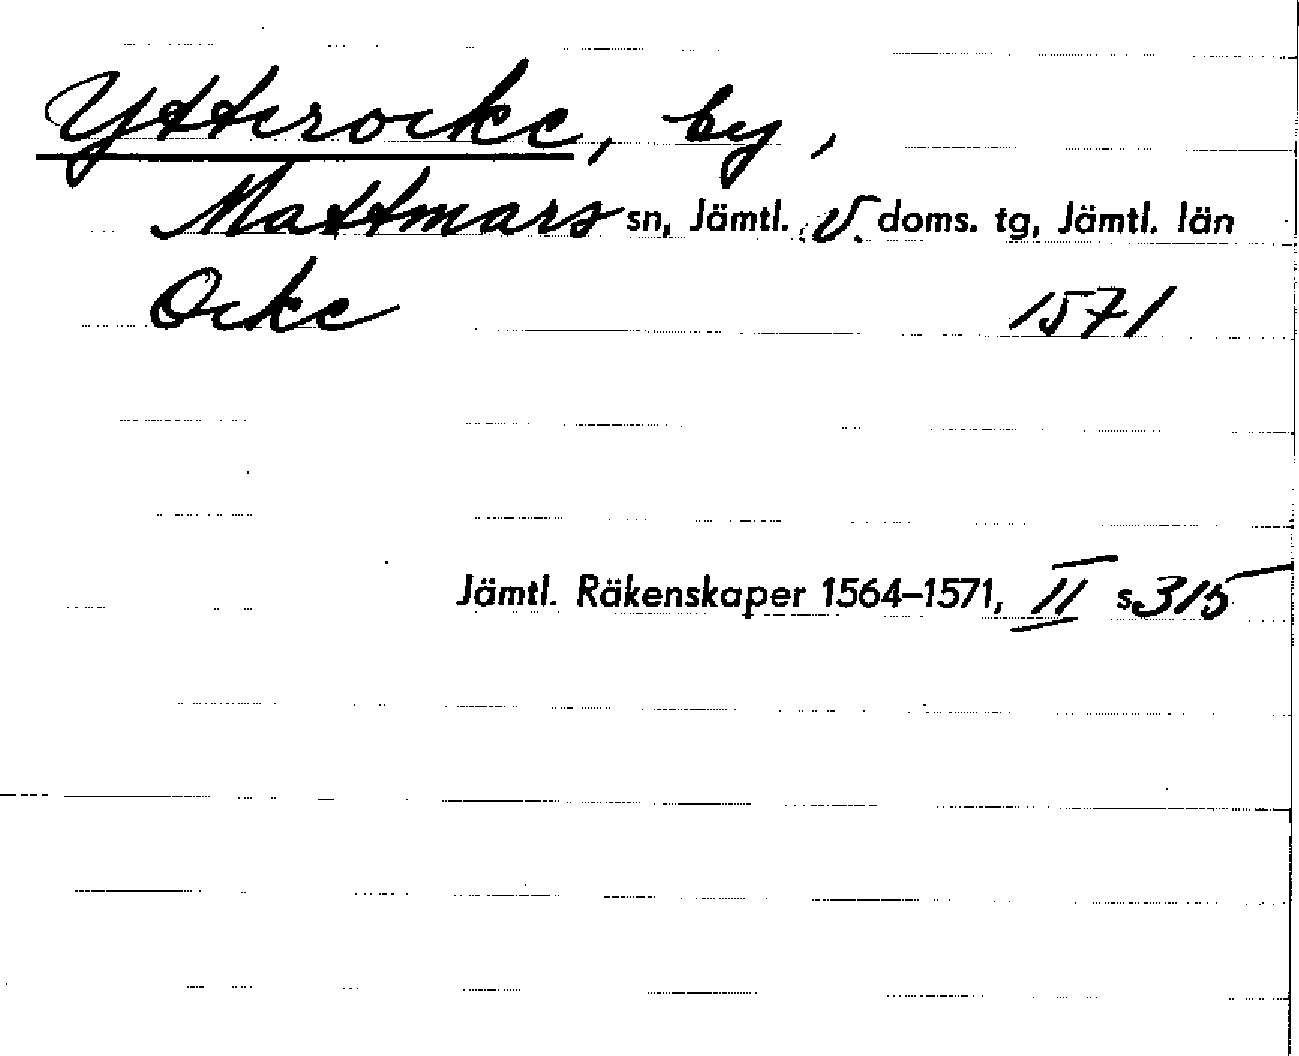 Ytterocke, by,
Mattmars sn, Jämtl. v. doms. tg, Jämtl. län
Ocke 1571
Jämtl. Räkenskaper 1564–1571, II s 315